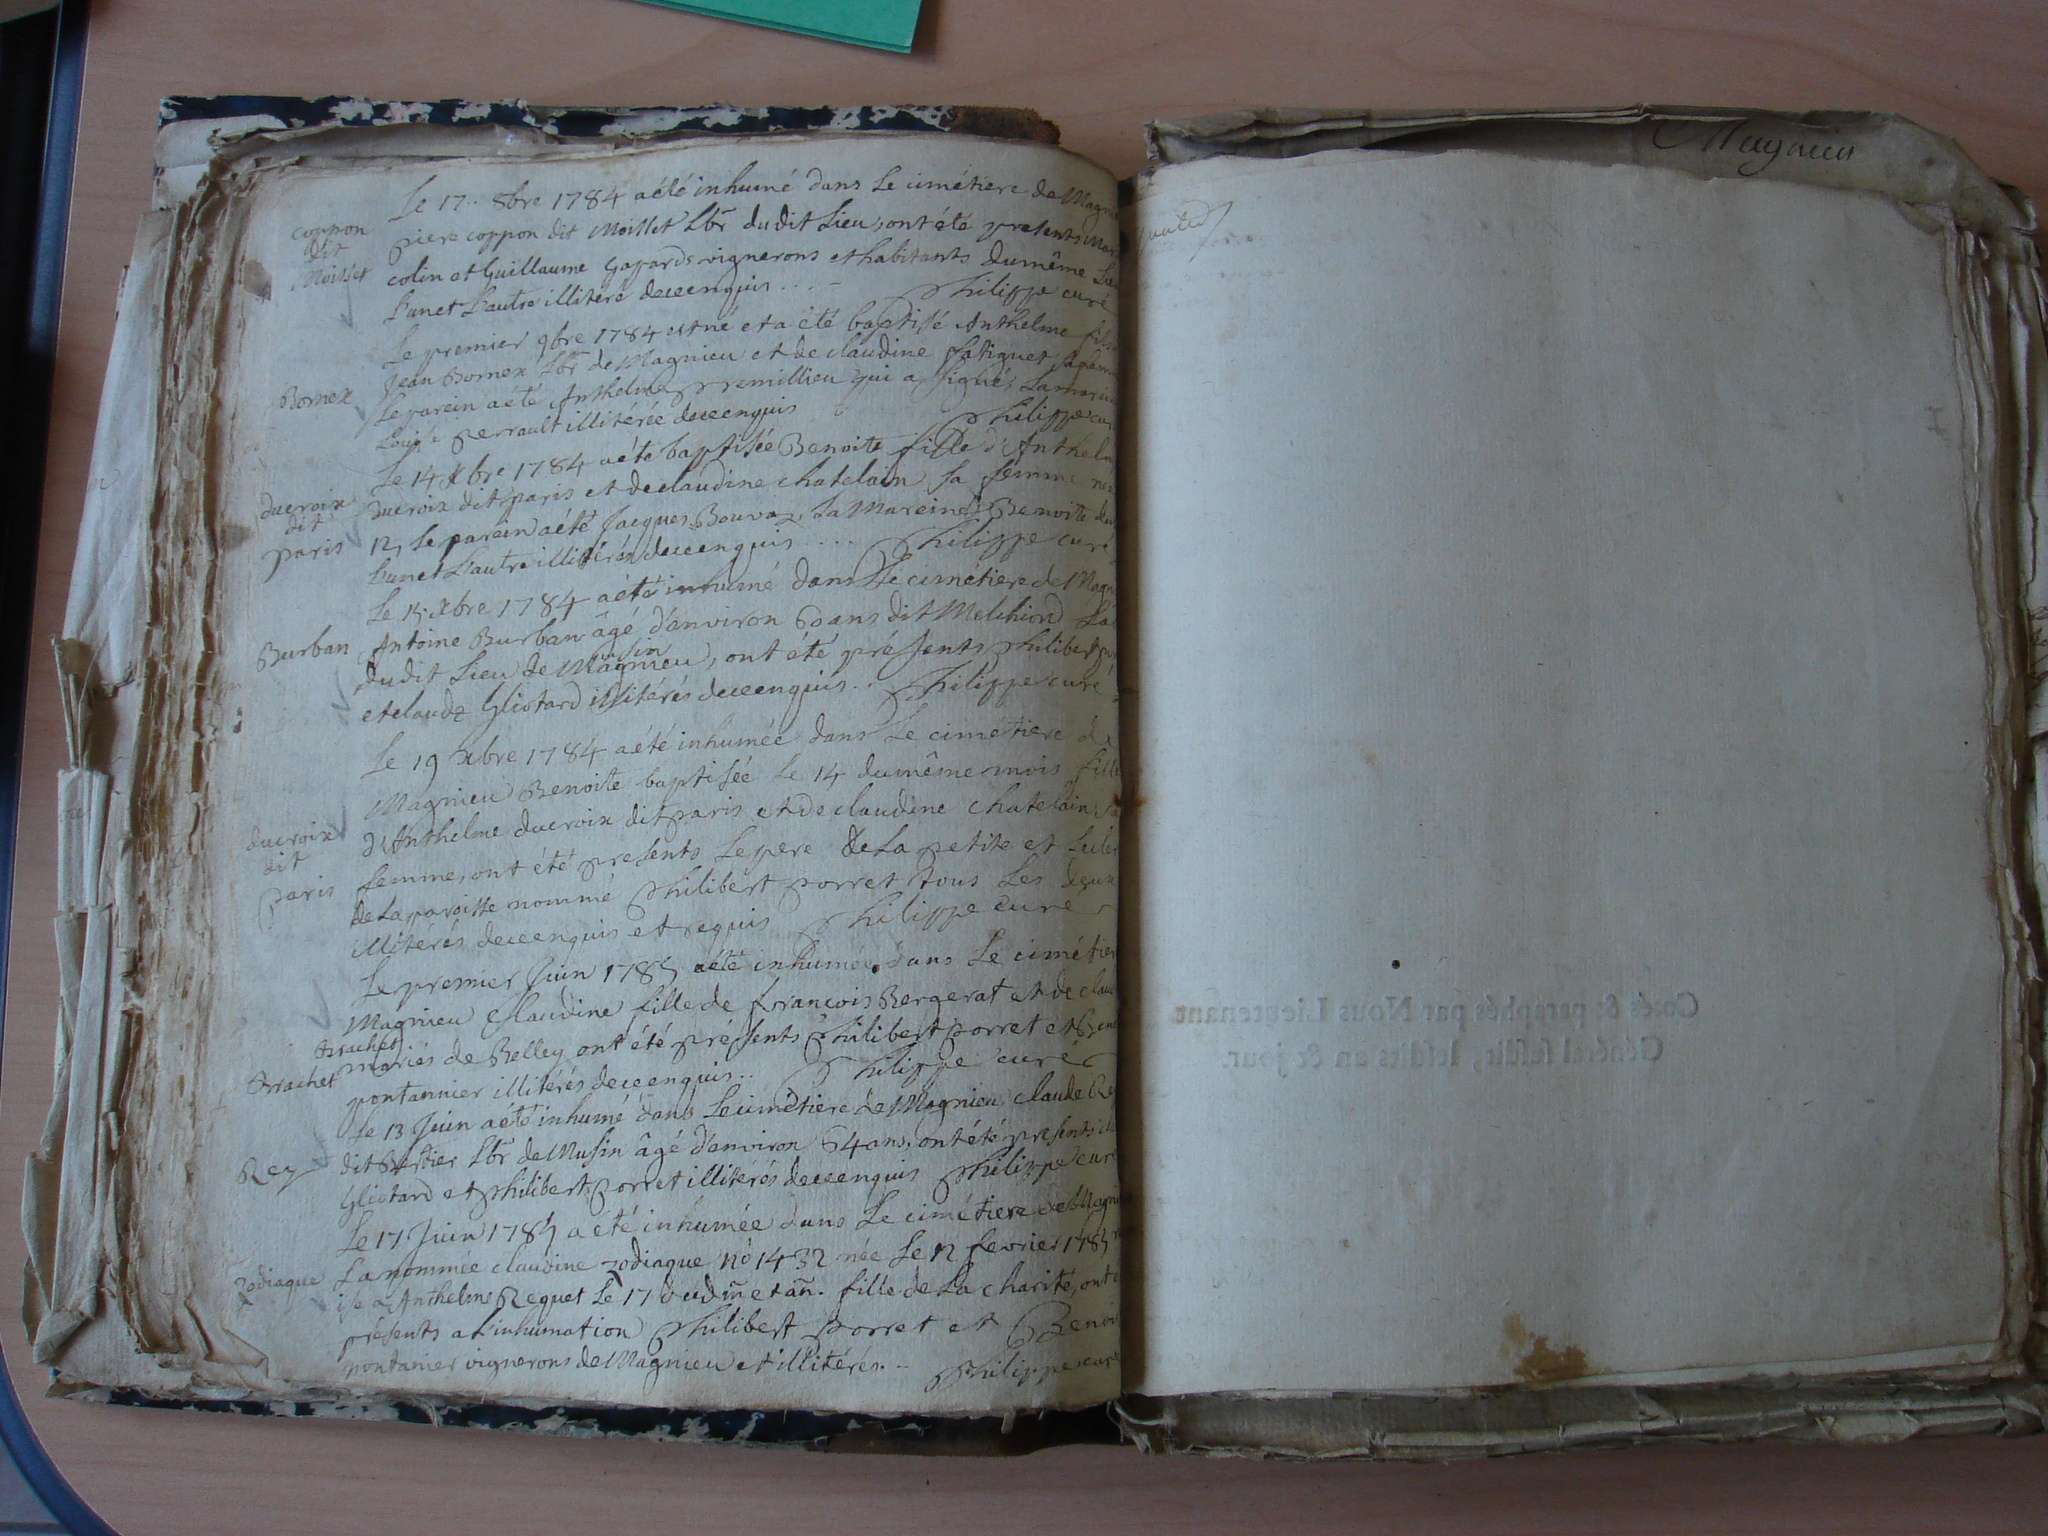 Le 17.. 8bre 1784 a été inhumé dans le cimétiere de Magni
coppon
dit
Moisset
piere coppon dit Moisset Lbr du dit Lieu, ont été presents
colin et Guillaume Gapards vignerons et habitants du même Lieu
L'un et L'autre illiteré de ce enquis .... Philippe curé
Le premier 9bre 1784 est né et a été baptisé Anthelme fils
Bornex
Jean Bornex Lbr de Magnieu et de claudine fatiguet sa fem
Le parein a été Anthelme premillieu qui a signé, La marei
Louise perrault illitérée de ce enquis Philippe cu
Le 14 Xbre 1784 a été baptisée Benoite fille d'Anthelm
ducroix
dit
paris
Ducroix dit paris et de claudine chatelain sa femme née
12, Le parein a été Jacques Bouvaz, La Mareine Benoite du
L'un et L'autre illitérés de ce enquis .... Philippe curé
Le 15 Xbre 1784 a été inhumé dans Le cimétiere de Magn
Burban
Antoine Burban âgé d'environ 60 ans dit Melchiord La
du dit Lieu de Magnieu, ont été présents philibert
et claudz Gliotard illitérés de ce enquis .. Philippe curé
Le 19 Xbre 1784 a été inhumée dans Le cimétiere de
Magnieu Benoite baptisée Le 14 du même mois fille
ducroix
dit
paris
d'Anthelme ducroix dit paris et de claudine chatelain sa
femme, ont été presents Le pere de La petite et
de La paroisse nommé Philibert porret tous Les deux
illitérés de ce enquis et requis Philippe curé
Le premier Juin 1785 a été inhumée dans Le cimétier
Magnieu Claudine fille de françois Bergerat et de clau
Trachet
Trachet
mariés de Belley, ont été présents Philibert porret et Ben
pontannier illitérés de ce enquis .. Philippe curé
Le 13 Juin a été inhumé dans Le cimétiere de Magnieu claude Re
Rey
dit Bertier Lbr de Musin âgé d'environ 64 ans. ont été presents
Gliotard et philibert porret illitérés de ce enquis Philippe curé
Le 17 Juin 1785 a été inhumée dans Le cimétiere de Magni
Zodiaque
La nommée claudine zodiaque no 1432 née Le 12 fevrier 1785
ise a Anthelme Reguet Le 17 dud m et an. fille de La charité, ont
présents a L'inhumation Philibert porret et Benoi
pontanier vignerons de Magnieu et illitérés .. Philippe curé
Magnieu
Cotés & paraphés par Nous Lieutenant
Général susdit, lesdits an & jour.